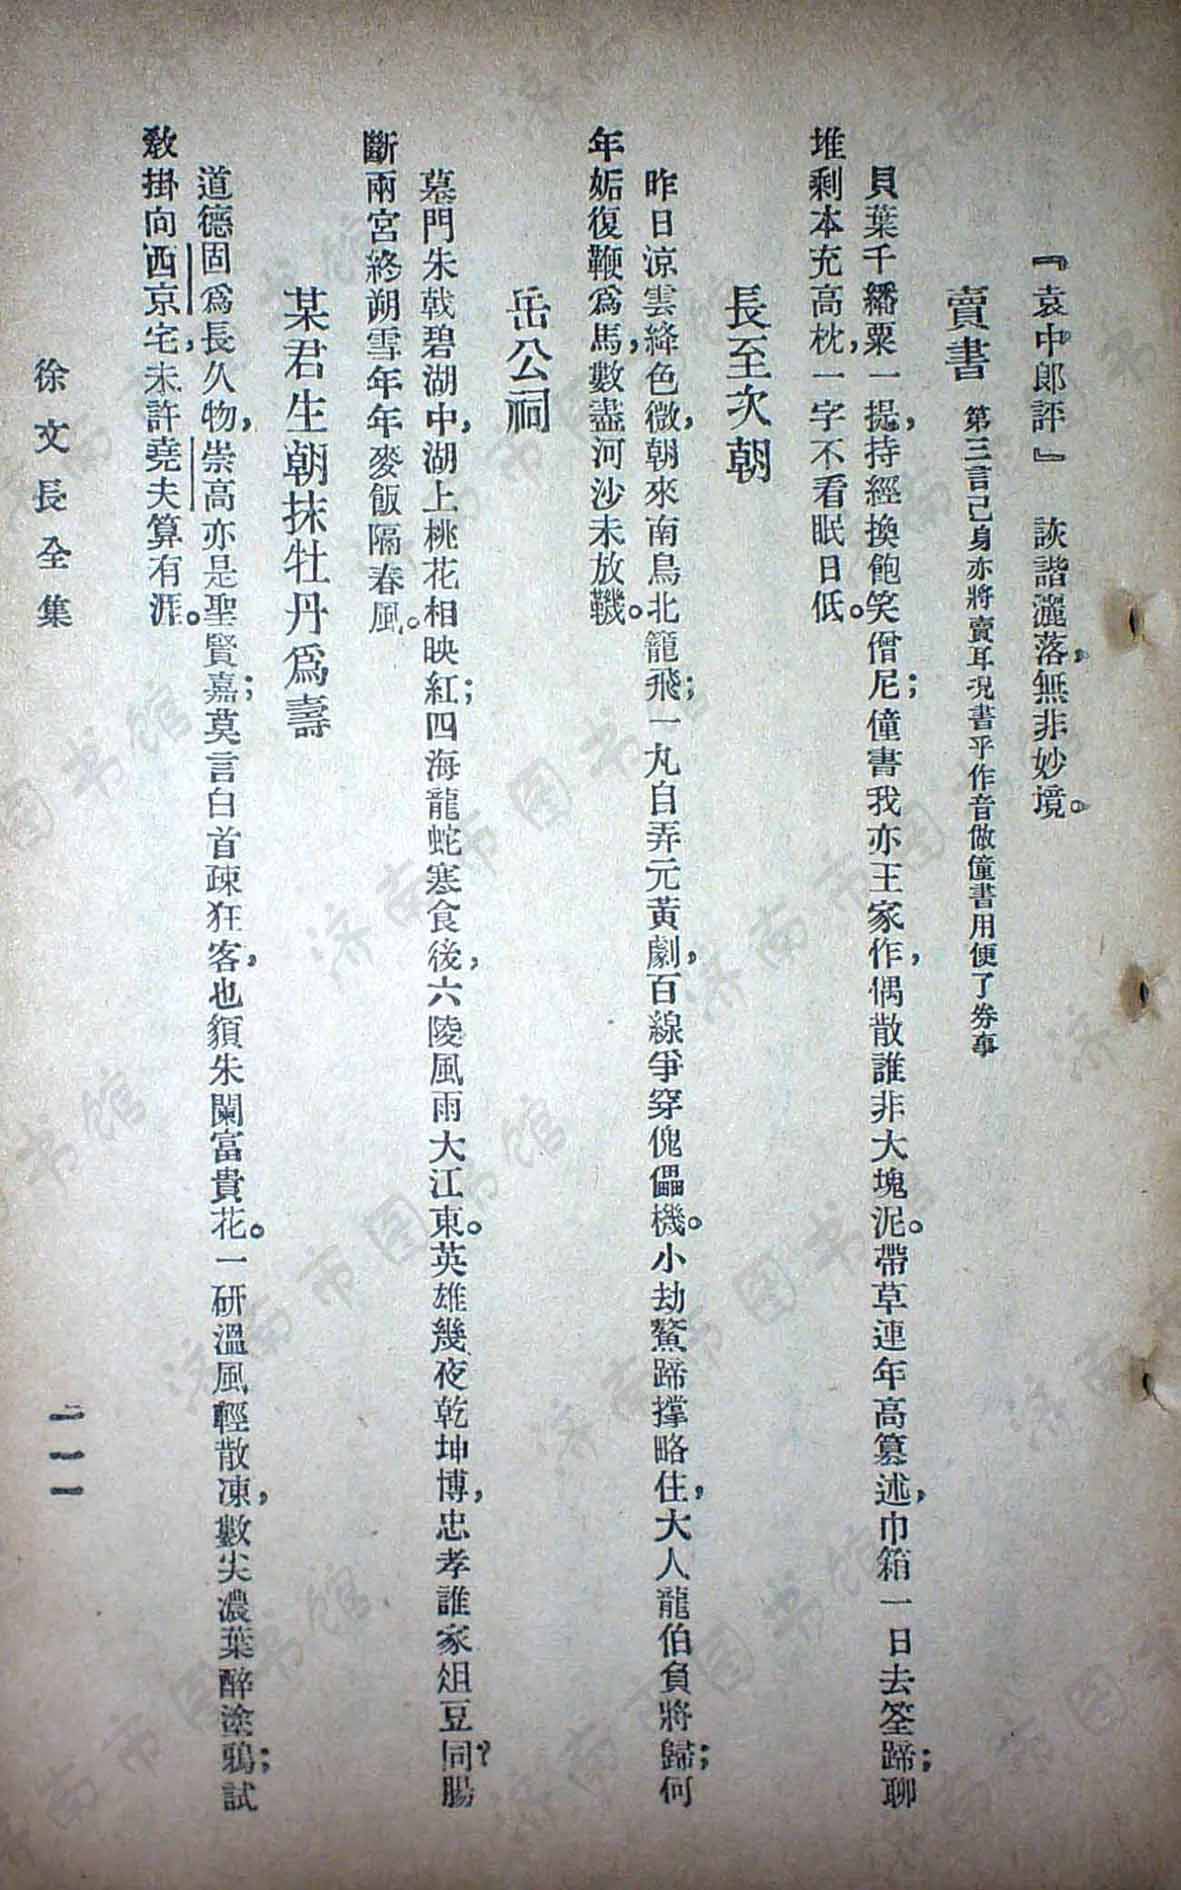 『袁中郎評』　詼諧灑落，無非妙境。
賣書　第三言己身亦將賣耳況書乎作音做僮書用便了券事
貝葉千繙粟一提，持經換飽笑僧尼；僮書我亦王家作，偶散誰非大塊泥。帶草連年高纂述，巾箱一日去筌蹄；聊
堆剩本充高枕，一字不看眠日低。
長至次朝
昨日涼雲絳色微，朝來南鳥北籠飛；一丸白弄元黃劇，百線爭穿傀儡機。小劫鰲蹄撐略住，大人龍伯負將歸；何
年妬復鞭爲馬，數盡河沙未放鞿。
岳公祠
墓門朱戟碧湖中，湖上桃花相映紅；四海龍蛇寒食後，六陵風雨大江東。英雄幾夜乾坤博，忠孝誰家俎豆同？腸
斷兩宮終朔雪年年麥飯隔春風。
某君生朝抹牡丹爲壽
道德固爲長久物，崇高亦是聖賢嘉；莫言白首疎狂客，也貌朱闌富貴花。一研溫風輕散凍，數尖濃葉醉塗鴉；試
敎掛向西京宅，未許堯夫算有涯。
徐文長全集
一一一
济南市图书馆